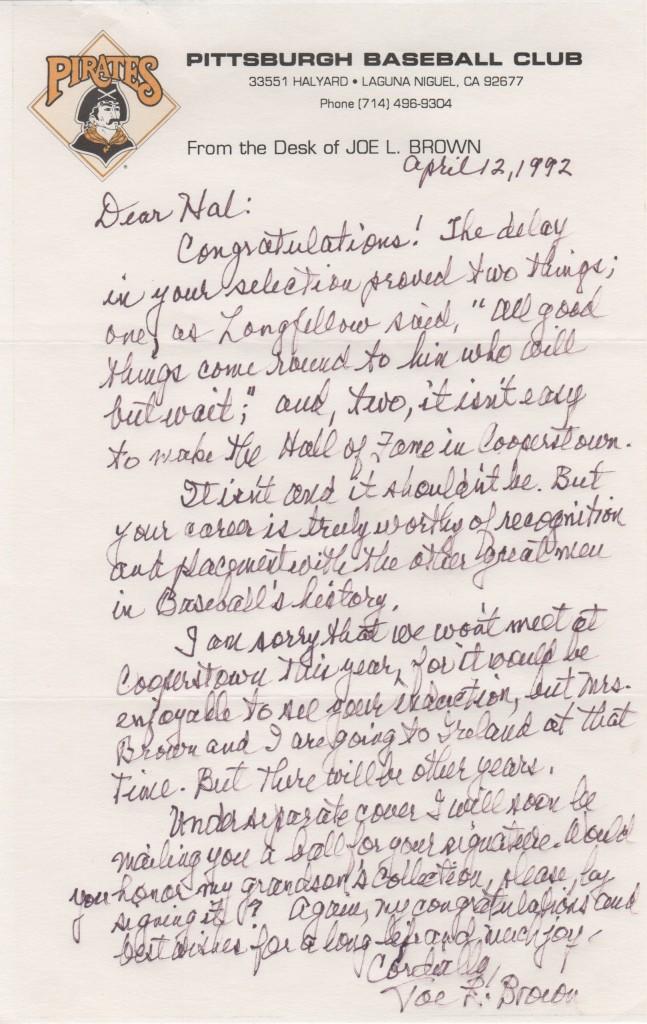 PIRATES
PITTSBURGH BASEBALL CLUB
33551 HALYARD • LAGUNA NIGUEL, CA 92677
Phone (714) 496-9304
From the Desk of JOE L. BROWN
April 12, 1992
Dear Hal:
Congratulations! The delay
in your selection proved two things;
one, as Longfellow said, "All good
things come round to him who will
but wait;" and, two, it isn't easy
to make the Hall of Fame in Cooperstown.
It isn't and it shouldn't be. But
your career is truly worthy of recognition
and placement with the other great men
in Baseball's history.
I am sorry that we won't meet at
Cooperstown this year, for it would be
enjoyable to see your induction, but Mrs.
Brown and I are going to Ireland at that
time. But there will be other years.
Under separate cover I will soon be
mailing you a ball for your signature. Would
you honor my grandson's collection, please, by
signing it? Again, my congratulations and
best wishes for a long life and much joy.
Cordially,
Joe L. Brown